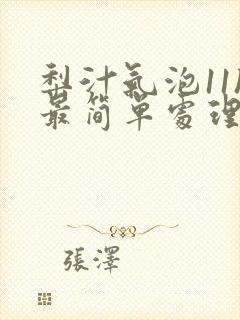 梨汁氣泡11M
最简單處理
張澤